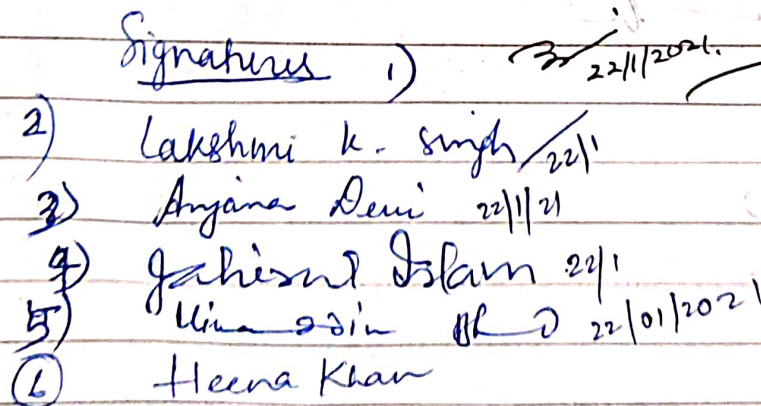 Signatures 1) 22/1/2021.
2) Lakshmi K. Singh 22/1
3) Anjana Devi 22/1/21
4) Jahirul Islam 22/1
5) 22/01/2021
6 Heena Khan